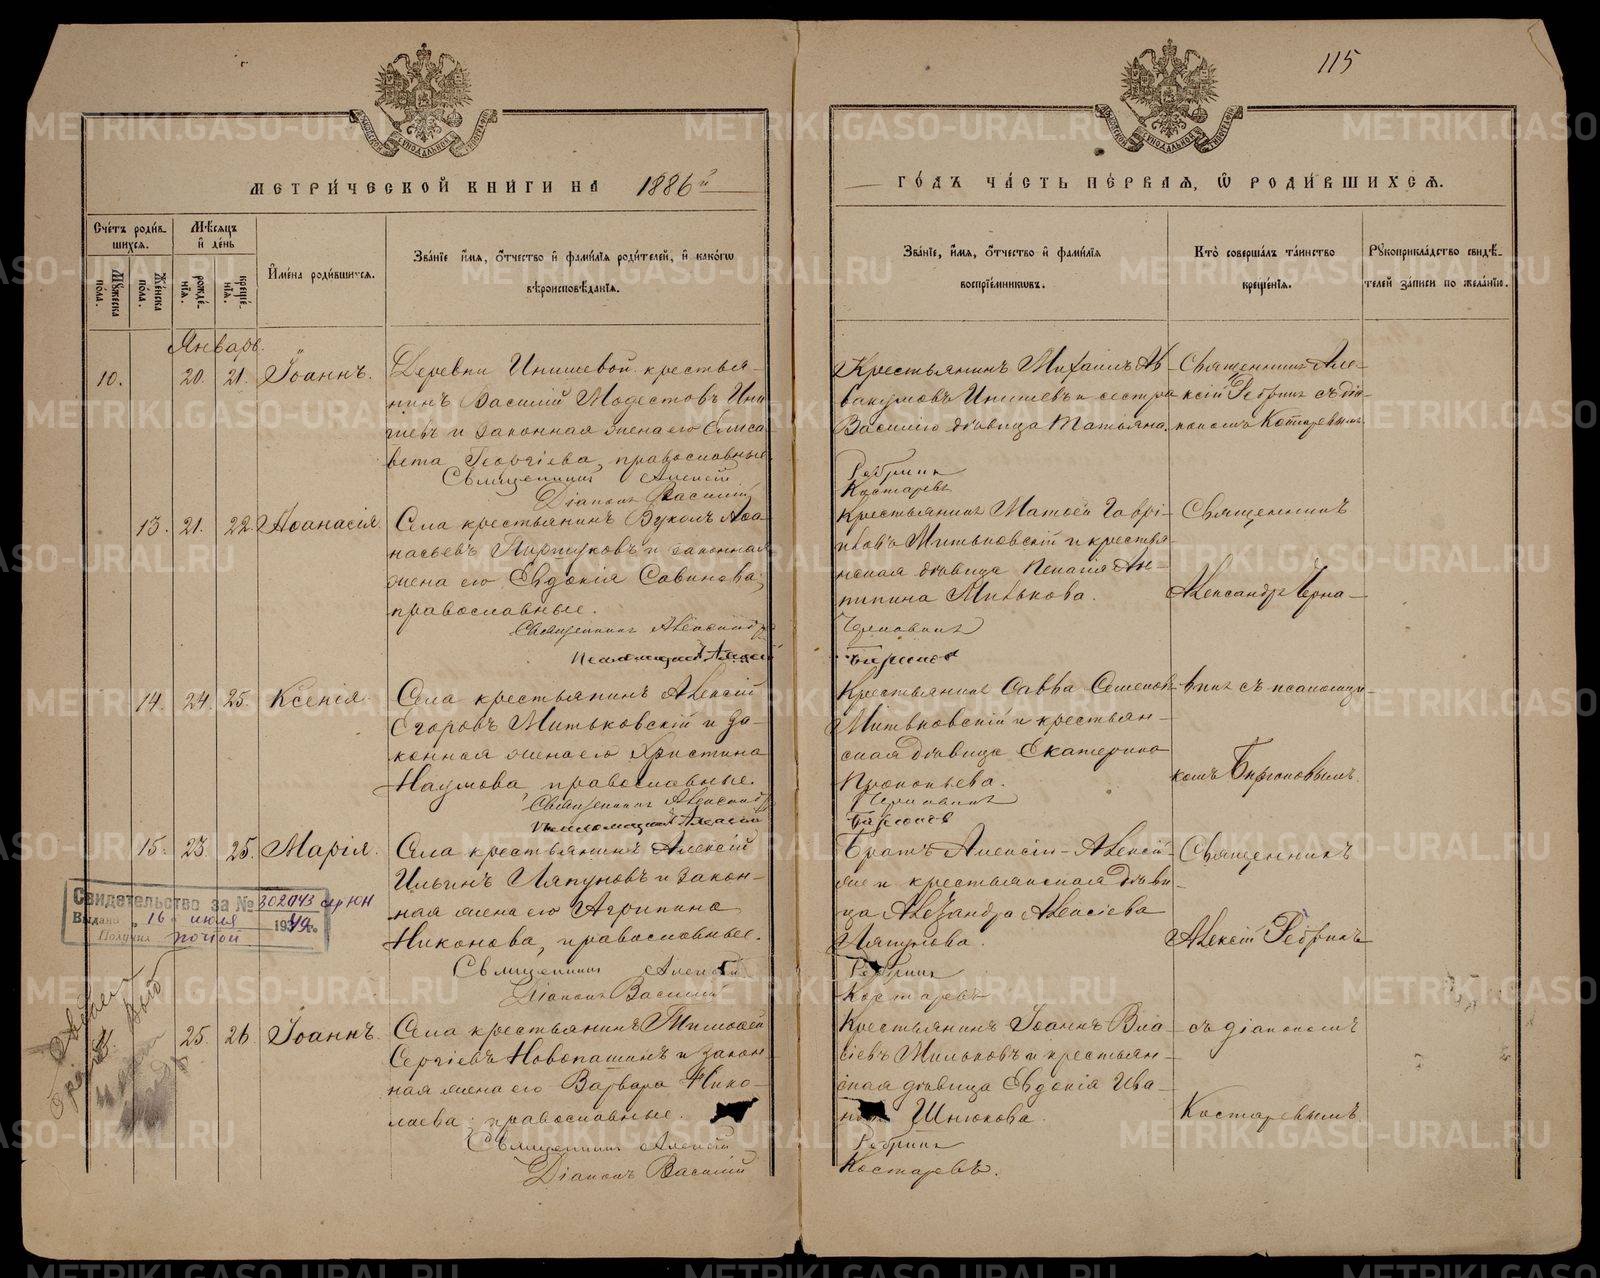 115
МЕТРИ́ЧЕСКОЙ КНИ́ГИ НА 1886й
ГО́ДЪ ЧА́СТЬ ПЕ́РВАЯ, Ѡ РОДИ́ВШИХСЯ.
Сче́тъ роди́в-
шихся.
Мѣ́сяцъ
и҆ де́нь
Му́жеска
по́ла.
Же́нска
по́ла.
рожде́-
нїя.
креще́-
нїя.
И҆мена̀ роди́вшихся.
Зва́нїе и҆́мя, ѻ҆́тчество и҆ фами́лїя роди́телей, и҆ како́гѡ
вѣроисповѣ́данїя.
Зва́нїе, и҆́мя, ѻ҆́тчество и҆ фами́лїя
воспрїе́мникѡвъ.
Кто̀ соверша́лъ та́инство
креще́нїя.
Рꙋкоприкла́дство свидѣ́-
телей за́писи по жела́нїю.
Январь.
10. 20. 21. Іоаннъ.
Деревни Инишевой крестья-
нинъ Василій Модестовъ Ини
шевъ и законная жена его Елиса
вета Георгіева, православные
Священникъ Алексій
Діаконъ Василій
Крестьянинъ Михаилъ Ав
вакумовъ Инишевъ и сестра
Василія дѣвица Татьяна.
Ребринъ
Костаревъ
Священникъ Але-
ксій Ребринъ съ діа-
кономъ Костаревымъ.
13. 21. 22. Аѳанасія.
Села крестьянинъ Вуколъ Аѳа
насьевъ и законная
жена его Евдокія Савинова,
православные.
Священникъ Александръ
Псаломщикъ Алексей
Крестьянинъ Матѳей Гаврі-
иловъ Митьковскій и крестья-
нская дѣвица Пелагія Ан-
типина Митькова.
Священникъ
Александръ
14. 24. 25. Ксенія.
Села крестьянинъ Алексій
Егоровъ Митьковскій и за-
конная жена его Христина
Наумова, православные.
Священникъ Александръ
Псаломщикъ Алексей
Крестьянинъ Савва Семенов
Митьковскій и крестьян-
ская дѣвица Екатерина
Прокопьева.
съ псаломщи-
комъ
15. 23. 25. Марія.
Села крестьянинъ Алексій
Ильинъ Ляпуновъ и закон-
ная жена его Агрипина
Никонова, православные.
Священникъ Алексій
Діаконъ Василій
Братъ Алексія - Алексій
же и крестьянская дѣви-
ца Александра Алексіева
Ляпунова.
Ребринъ
Костаревъ
Священникъ
Алексій Ребринъ
Свидетельство за № 302943
Выдано „16“ июля 19
Получил почтой
25. 26. Іоаннъ.
Села крестьянинъ Тимоѳей
Сергіевъ Новопашинъ и закон-
ная жена его Варвара Нико-
лаева, православные.
Священникъ Алексій
Діаконъ Василій
Крестьянинъ Іоаннъ Вла
сіевъ Мильковъ и крестьян-
ская дѣвица Евдокія Ива
Шнюкова.
Ребринъ
Костаревъ.
съ діакономъ
Костаревымъ
METRIKI.GASO-URAL.RU